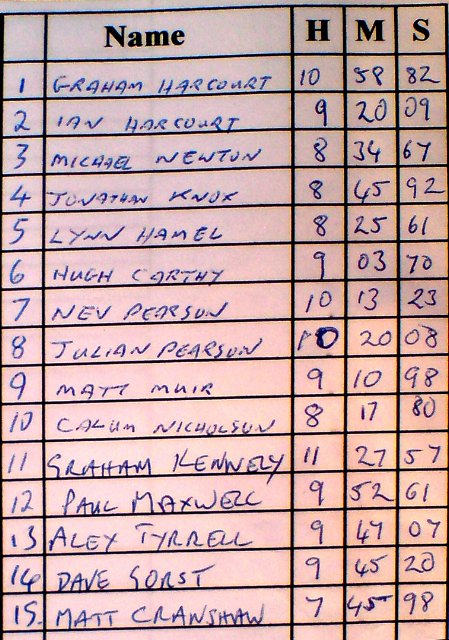 Name H M S
1 GRAHAM HARCOURT 10 58 82
2 IAN HARCOURT 9 20 09
3 MICHAEL NEWTON 8 34 67
4 JONATHAN KNOX 8 45 92
5 LYNN HAMEL 8 25 61
6 HUGH CARTHY 9 03 70
7 NEV PEARSON 10 13 23
8 JULIAN PEARSON 10 20 08
9 MATT MUIR 9 10 98
10 CALUM NICHOLSON 8 17 80
11 GRAHAM KENNELY 11 27 57
12 PAUL MAXWELL 9 52 61
13 ALEX TYRRELL 9 47 07
14 DAVE GORST 9 45 20
15. MATT CRANSHAW 7 45 98